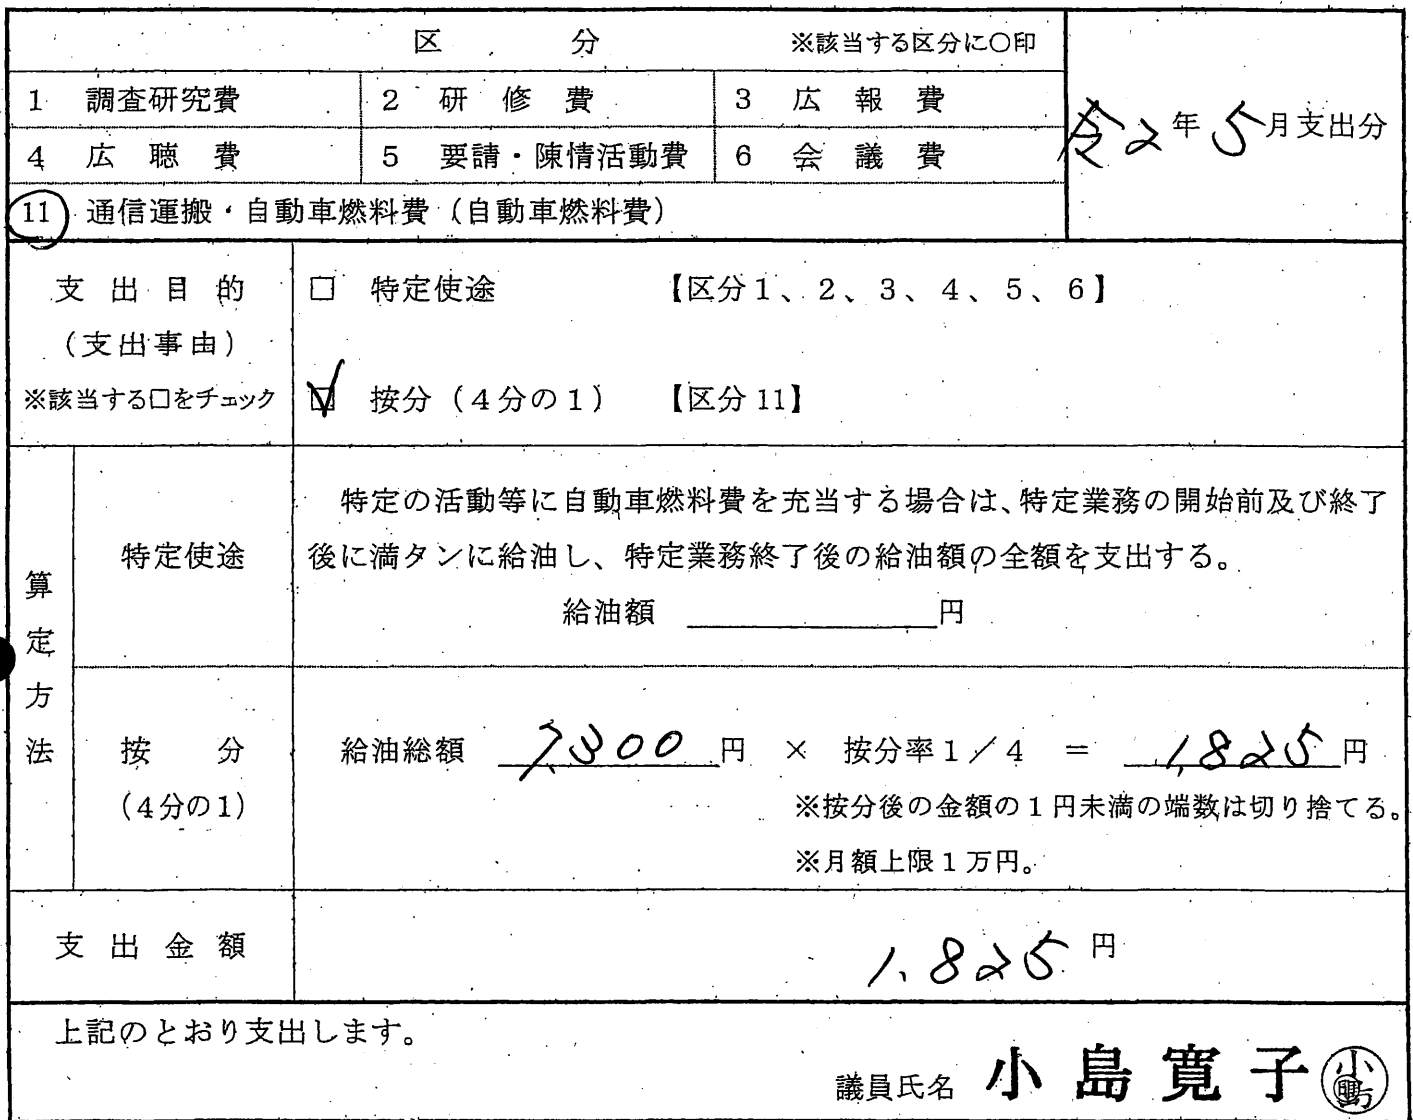 区 分 ※該当する区分に○印
1 調査研究費 2 研修費 3 広報費
令2年5月支出分
4 広聴費 5 要請・陳情活動費 6 会議費
11 通信運搬・自動車燃料費（自動車燃料費）
支出目的
（支出事由）
※該当する□をチェック
□ 特定使途 【区分1、2、3、4、5、6】
☑ 按分（4分の1） 【区分11】
算定方法
特定使途
特定の活動等に自動車燃料費を充当する場合は、特定業務の開始前及び終了
後に満タンに給油し、特定業務終了後の給油額の全額を支出する。
給油額 円
按分
（4分の1）
給油総額 7,300 円 × 按分率1／4 ＝ 1,825 円
※按分後の金額の1円未満の端数は切り捨てる。
※月額上限1万円。
支出金額 1,825 円
上記のとおり支出します。
議員氏名 小島寛子 小島